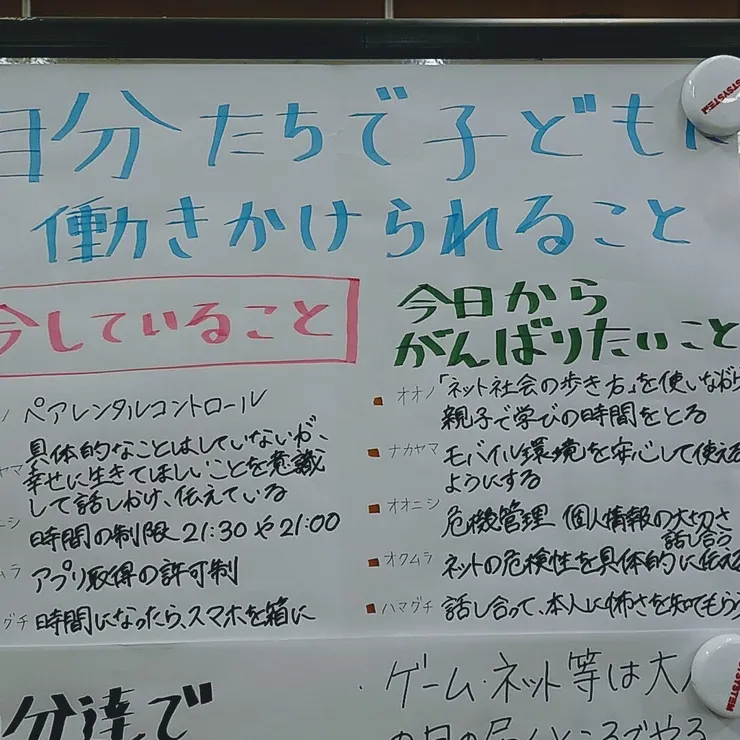 自分たちで子どもに
働きかけられること
今していること
ペアレンタルコントロール
具体的なことはしていないが、
幸せに生きてほしいことを意識
して話しかけ、伝えている
時間の制限 21:30や21:00
アプリ取得の許可制
時間になったら、スマホを箱に
今日から
がんばりたいこと
オオノ「ネット社会の歩き方」を使いながら
親子で学びの時間をとる
ナカヤマ モバイル環境を安心して使える
ようにする
オオニシ 危機管理 個人情報の大切さ
話し合う
オクムラ ネットの危険性を具体的に伝える
ハマグチ 話し合って、本人に怖さを知てもらう
分達で
・ゲーム・ネット等は大人
の目の届くところでやる
SYSTEM
SYSTEM